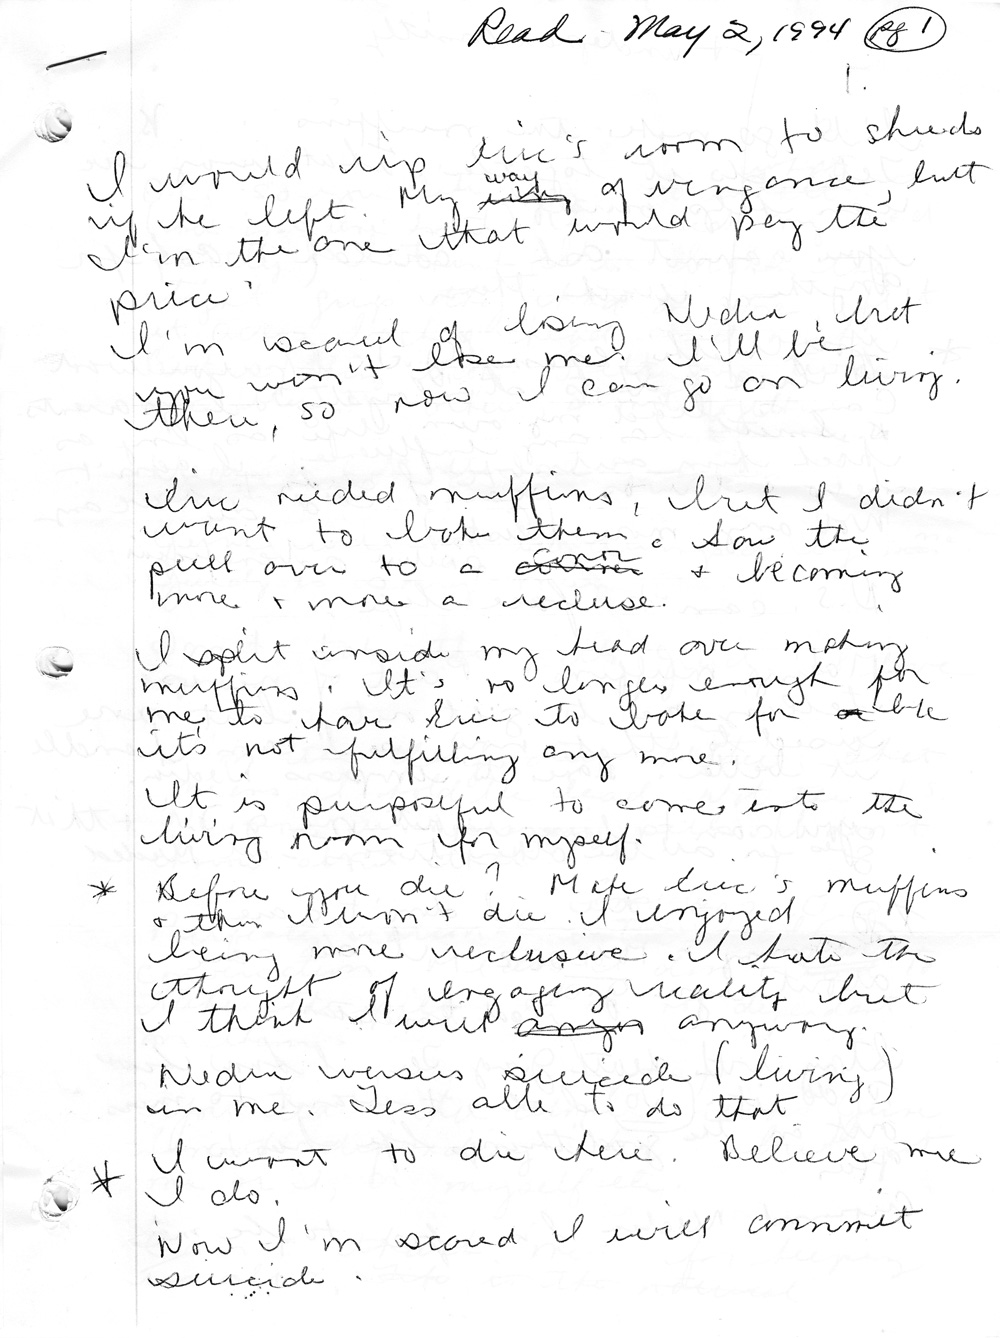 Read May 2, 1994 pg 1
1.
I would rip Eric's room to shreds
if he left. My way of vengance, but
I'm the one that would pay the
price.
I'm scared of losing Nedra, but
you won't lose me. I'll be
there, so now I can go on living.
Eric needed muffins, but I didn't
want to bake them. Saw the
pull over to a & becoming
more & more a recluse.
I split inside my head over making
muffins. It's no longer enough for
me to have Eric to bake for
it's not fulfilling any more.
It is purposeful to come into the
living room for myself.
* Before you die? Make Eric's muffins
& then I won't die. I enjoyed
being more reclusive. I hate the
thought of engaging reality but
I think I will anyway.
Nedra versus suicide (living)
in me. Less able to do that
* I want to die here. Believe me
I do.
Now I'm scared I will commit
suicide.